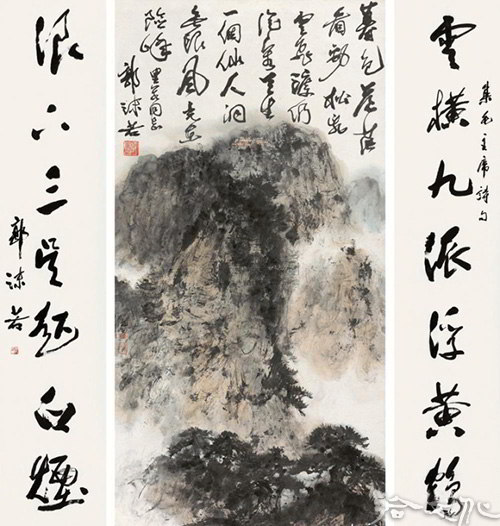 雲橫九派浮黄鶴
集毛主席詩句
暮色蒼茫
看勁松亂
雲飛渡仍
從容天生
一個仙人洞
無限風光在
險峰
同志
郭沫若
浪下三吴起白煙
郭沫若